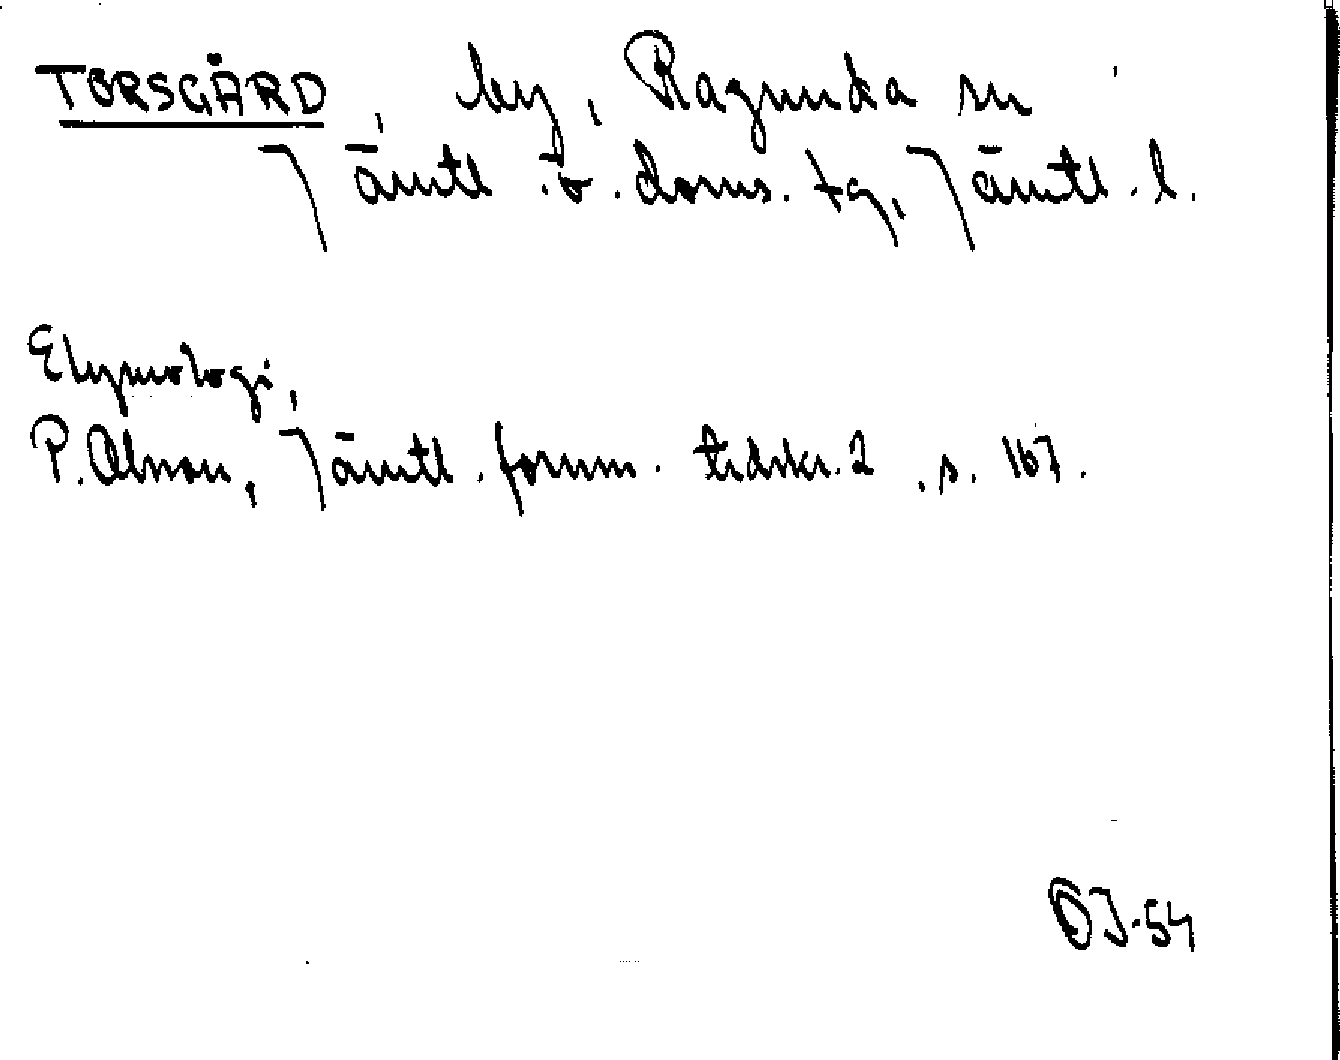 TORSGÅRD, by, Ragunda sn
Jämtl. ö. doms. tg, Jämtl. l.
Etymologi,
P. Olsson, Jämtl. fornm. tidskr. 2, s. 167.
OJ-54